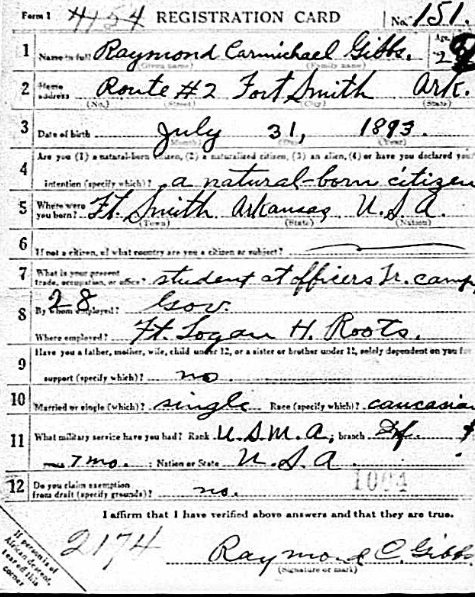 Form 1 4154 REGISTRATION CARD No. 151.
1 Name in full Raymond Carmichael Gibbs. Age,
(Given name) (Family name)
2 Home address Route #2 Fort Smith Ark.
(No.) (Street) (City) (State)
3 Date of birth July 31, 1893.
(Month) (Day) (Year)
Are you (1) a natural-born citizen, (2) a naturalized citizen, (3) an alien, (4) or have you declared your
4 intention (specify which)? a natural-born citizen
5 Where were you born? Ft. Smith Arkansas U.S.A.
(Town) (State) (Nation)
6 If not a citizen, of what country are you a citizen or subject?
7 What is your present trade, occupation, or office? student at officers Tr. camp
28
8 By whom employed? Gov.
Where employed? Ft. Logan H. Roots.
9 Have you a father, mother, wife, child under 12, or a sister or brother under 12, solely dependent on you for
support (specify which)? no
10 Married or single (which)? single Race (specify which)? caucasian
11 What military service have you had? Rank U.S.M.A.; branch
7 mo. ; Nation or State U.S.A.
12 Do you claim exemption from draft (specify grounds)? no.
I affirm that I have verified above answers and that they are true.
2174 Raymond C. Gibbs
(Signature or mark)
If person is of
African descent,
tear off this
corner.